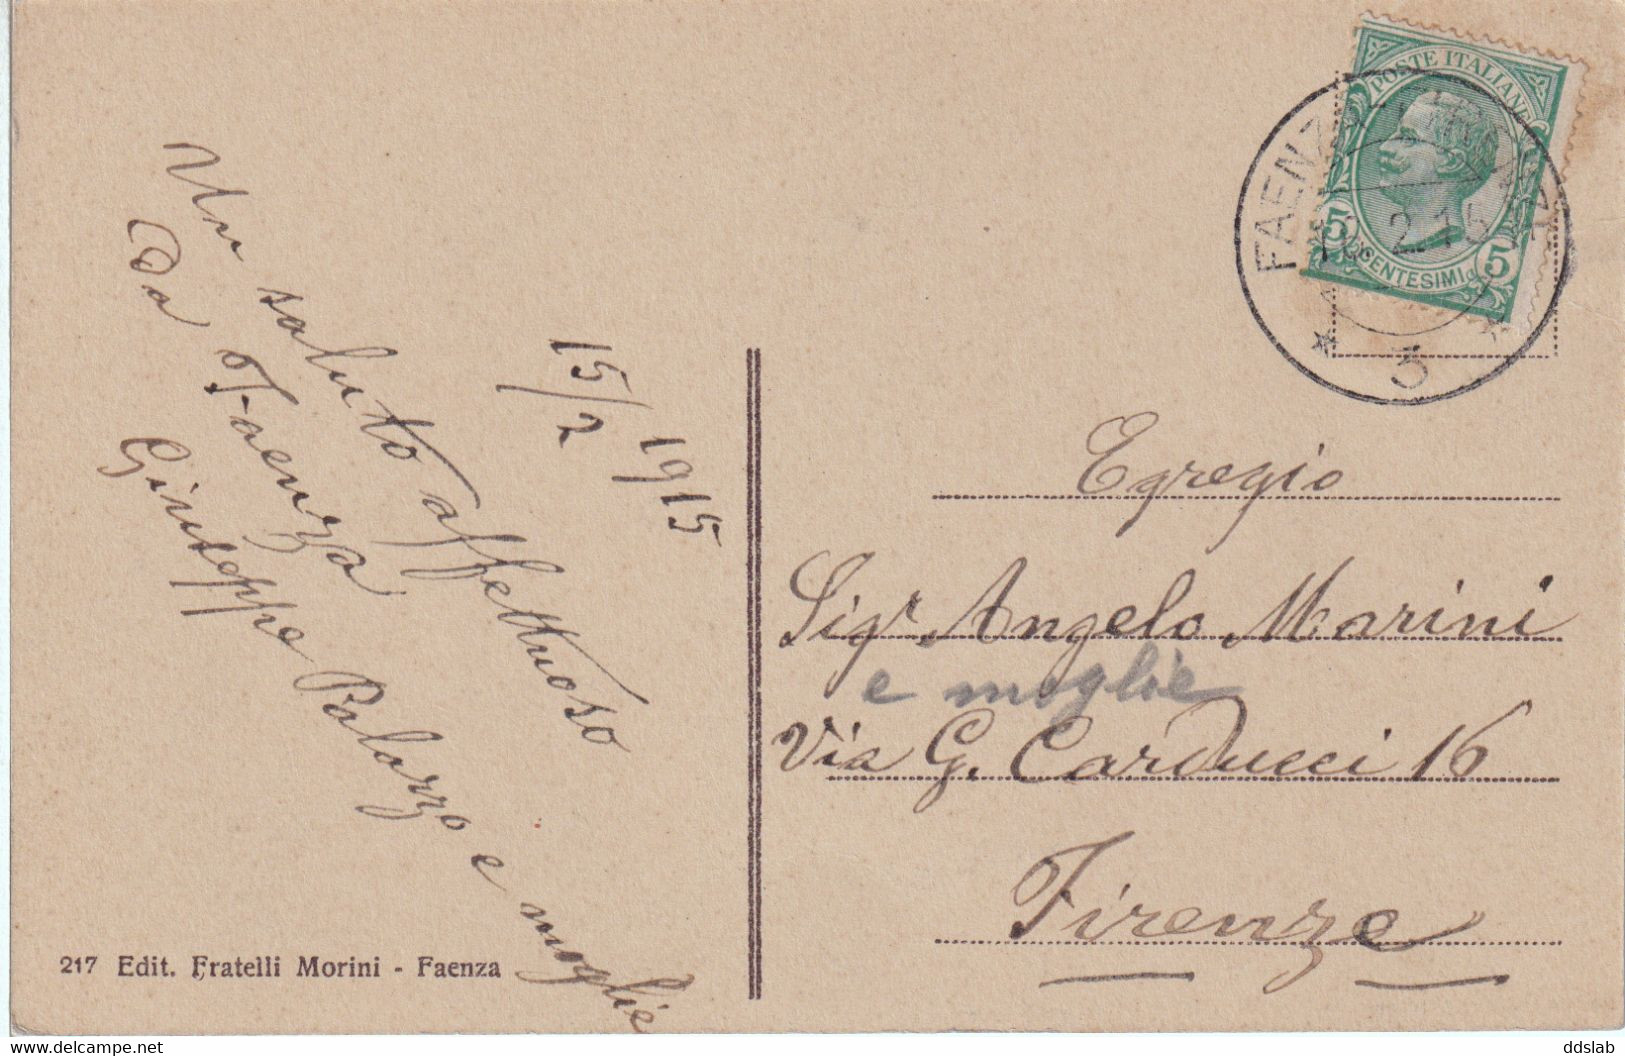 Un saluto affettuoso
Da Faenza
Giuseppe Palazzo e moglie
15/2 1915
217 Edit. Fratelli Morini - Faenza
POSTE ITALIANE
5 CENTESIMI 5
FAENZA - FIRENZE
2.15
* 3 *
Egregio
Sigr Angelo Marini
e moglie
Via G. Carducci 16
Firenze
www.delcampe.net
ddslab